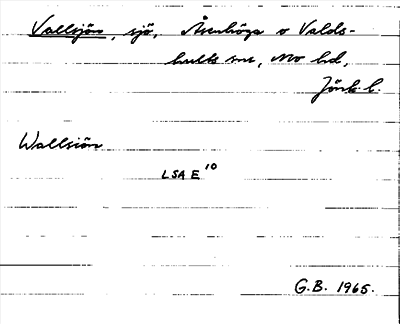 Vallsjön, sjö, Åsenhöga o Valds-
hults snr, Mo hd,
Jönk. l.
Wallsiön
LSA E 10
G.B. 1965.